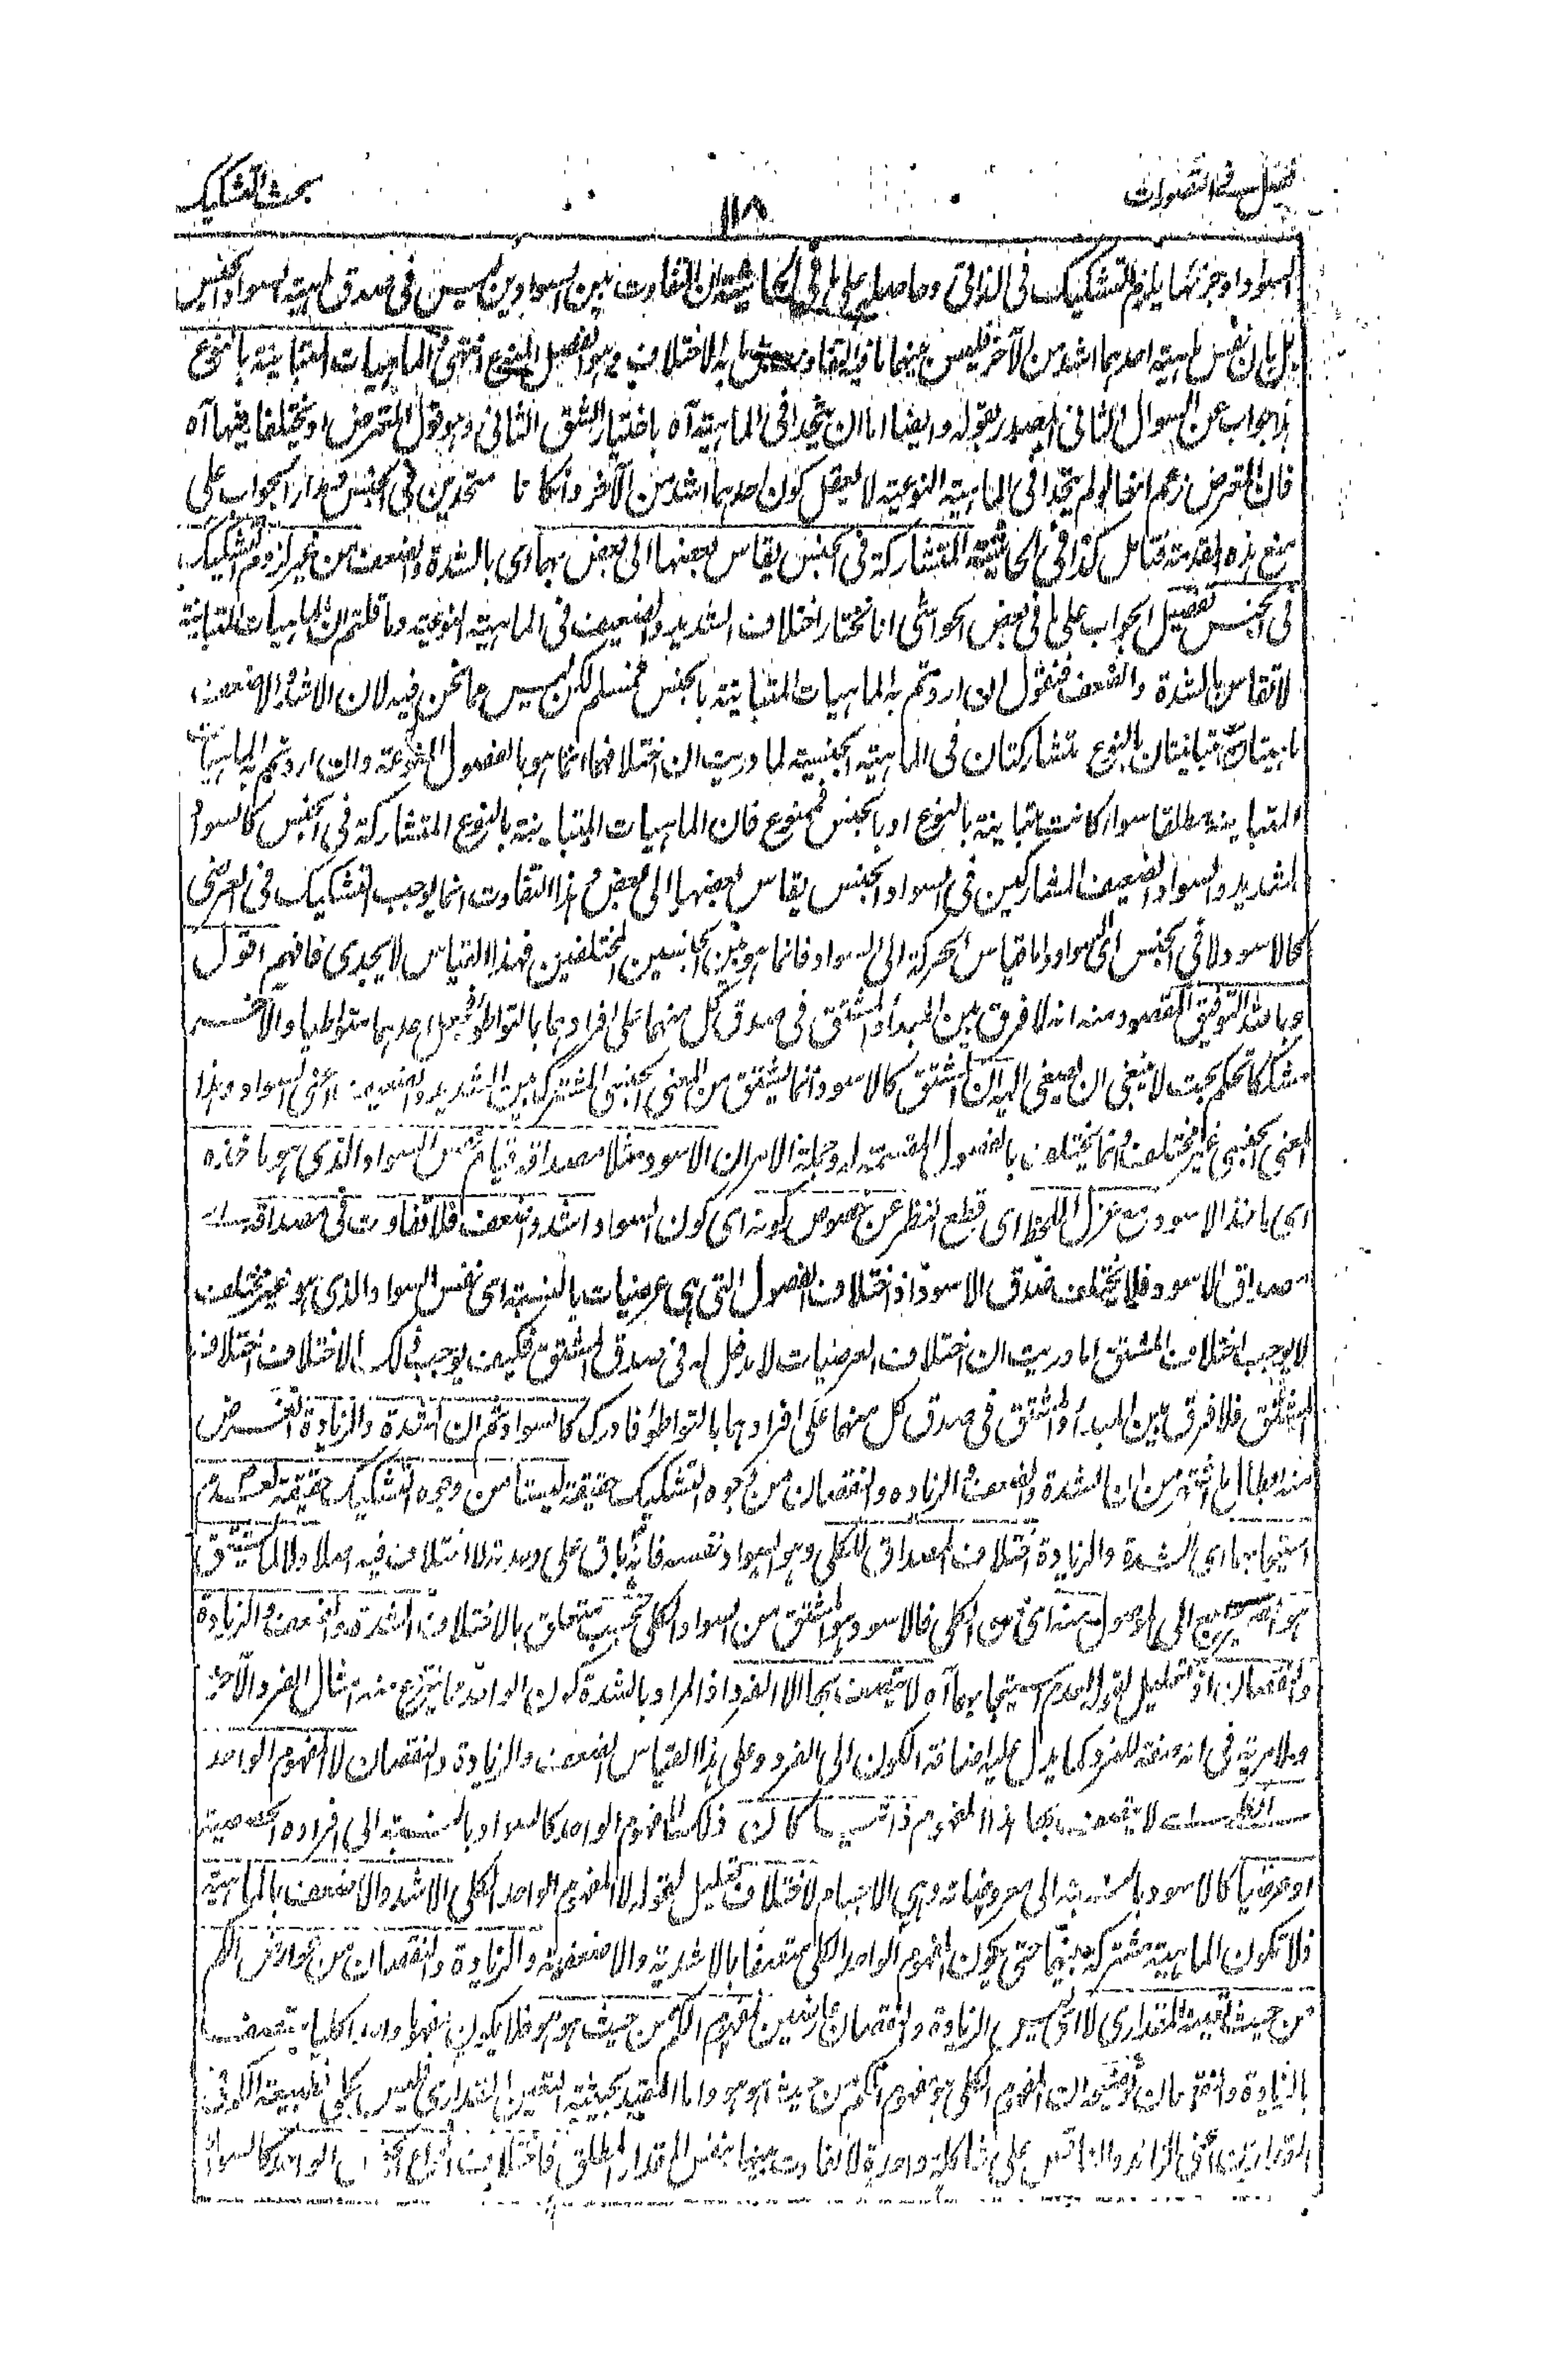 فصل في التصورات
١١٨
بحث التشكيك
السواد او جزئها يلزم التشكيك في الذاتي وحاصله على ما في الحاشية ان التفاوت بين السوادين ليس في صدق ماهية السواد الجنس
بل بان نفس ماهية احدهما اشد من الآخر فليس بينهما ما فيه التفاوت ما به الاختلاف وهو الفصل المنوع انتهى الماهيات المتباينة بالنوع
هذا جواب عن السوال الثاني المصدر بقوله وايضا اما ان يتحدا في الماهية آه باختيار الشق الثاني وهو قول المعترض او يختلفا فيها آه
فان المعترض زعم انهما لو لم يتحدا في الماهية النوعية لا يعقل كون احدهما اشد من الآخر وان كانا متحدين في الجنس فمدار الجواب على
منع هذه المقدمة فتامل كذا في الحاشية المتشاركة في الجنس يقاس بعضها الى بعض بهما اى بالشدة والضعف من غير لزوم التشكيك
في الجنس تفصيل الجواب على ما في بعض الحواشى انا نختار اختلاف الشديد والضعيف في الماهية النوعية وما قلتم ان الماهيات المتباينة
لا تقاس بالشدة والضعف فنقول ان اردتم به الماهيات المتباينة بالجنس فمسلم لكن ليس ما نحن فيه لان الاشد والاضعف
ماهيتان متباينتان بالنوع متشاركتان في الماهية الجنسية لما دريت ان اختلافهما انما هو بالفصول المنوعة وان اردتم به الماهيات
المتباينة مطلقا سواء كانت متباينة بالنوع او بالجنس فممنوع فان الماهيات المتباينة بالنوع المتشاركة في الجنس كالسواد
الشديد والسواد الضعيف المشاركين في السواد الجنس يقاس بعضها الى بعض نعم هذا التفاوت انما يوجب التشكيك في العرضى
كالاسود لا في الجنس اى السواد واما قياس الحركة الى السواد فانما هو بين الجانسين المختلفين فهذا القياس لا يجدى فافهم اقول
وبالله التوفيق المقصود منه انه لا فرق بين المبدأ والمشتق في صدق كل منهما على افرادهما بالتواطؤ فجعل احدهما متواطيا والآخر
مشككا تحكم بحت لا ينبغى ان يصغى اليه ان المشتق كالاسود انما يشتق من المعنى الجنسى المشترك بين الشديد والضعيف اعنى السواد وهذا
المعنى الجنسى غير مختلف وانما يختلف بالفصول المقسمة له وجملة الامر ان الاسود مثلا مصداقه قيام نفس السواد الذى هو ماخذه
اى ماخذ الاسود مع عزل اللحظ اى قطع النظر عن خصوص كونه اى كون السواد اشد واضعف فلا تفاوت في مصداقه اى
مصداق الاسود فلا يختلف صدق الاسود اذ اختلاف الفصول التى هى عرضيات بالنسبة الى نفس السواد الذى هو غير مختلف
لا يوجب اختلاف المشتق اما دريت ان اختلاف العرضيات لا دخل له في صدق المشتق فكيف يوجب ذلك الاختلاف اختلاف
المشتق فلا فرق بين المبدأ والمشتق في صدق كل منهما على افرادهما بالتواطؤ فادرك كالسواد ثم ان الشدة والزيادة الغرض
منه ابطال ما اشتهر من ان الشدة والضعف والزيادة والنقصان من وجوه التشكيك حقيقة ليستا من وجوه التشكيك حقيقة لعدم
استيجابهما اى الشدة والزيادة اختلاف المصداق للكلى وهو السواد نفسه فانه باق على وحدته لا اختلاف فيه اصلا ولا لما يشتق
هو الضمير يرجع الى الموصول منه اى من الكلى فالاسود هو المشتق من السواد الكلى بحسب متعلق بالاختلاف الشدة والضعف والزيادة
والنقصان اذ تعليل لقوله لعدم استيجابهما آه لا يتصف بهما الا الفرد اذ المراد بالشدة كون الواحد مما ينتزع منه امثال الفرد الآخر
ولا مرية في انه صفة للفرد كما يدل عليه اضافة الكون الى الفرد وعلى هذا القياس الضعف والزيادة والنقصان لا المفهوم الواحد
لا يتصف بهما هذا المفهوم ذاتيا كان ذلك المفهوم الواحد كالسواد بالنسبة الى افراده الحصصية
او عرضيا كالاسود بالنسبة الى معروضاته وهى الاجسام لاختلاف تعليل لقوله لا المفهوم الواحد الكلى الاشد والاضعف بالماهية
فلا تكون الماهية مشتركة بينهما حتى يكون المفهوم الواحد الكلى متصفا بالاشدية والاضعفية والزيادة والنقصان من عوارض الكم
من حيث التعين المقدارى لا اى ليس الزيادة والنقصان عارضين لمفهوم الكم من حيث هو هو فلا يكون مفهوما واحدا كليا يتصف
بالزيادة والنقصان ان المفهوم الكلى هو مفهوم الكم من حيث هو هو واما المقيد بحيثية التعين المقدارى فليس بكلى فطبيعة الكم في
المقدارين اعنى الزائد والناقص على شاكلة واحدة لا تفاوت بينهما بنفس المقدار المطلق فاختلاف انواع الجنس الواحد كالسواد